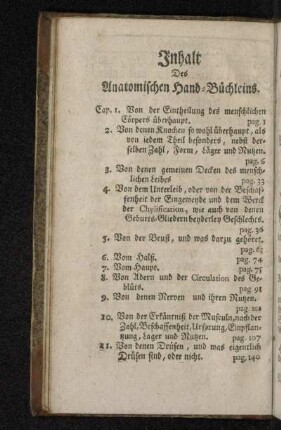 Inhalt
Des
Anatomischen Hand-Büchleins.
Cap. 1. Von der Eintheilung des menschlichen
Cörpers überhaupt. pag. 1
2. Von denen Knochen so wahl überhaupt, als
von iedem Theil besonders, nebst der-
selben Zahl, Form, Läger und Nutzen.
pag. 6
3. Von denen gemeinen Decken des mensch-
lichen Leibes pag. 33
4. Von dem Unterleib, oder von der Beschaf-
fenheit der Eingeweyde und dem Werck
der Chylification, wie auch von denen
Geburts-Gliedern beyderley Geschlechts.
pag. 36
5. Von der Brust, und was darzu gehöret.
pag. 63
6. Vom Halß. pag. 74
7. Vom Haupt. pag. 75
8. Von Adern und der Circulation des Ge-
blüts. pag 91
9. Von denen Nerven und ihren Nutzen.
pag.
10. Von der Erkäntniß der Musculn, nach der
Zahl, Beschaffenheit, Ursprung, Einpflan-
tzung, Lager und Nutzen. pag. 107
11. Von denen Drüsen, und was eigentlich
Drüsen sind, oder nicht. pag. 140